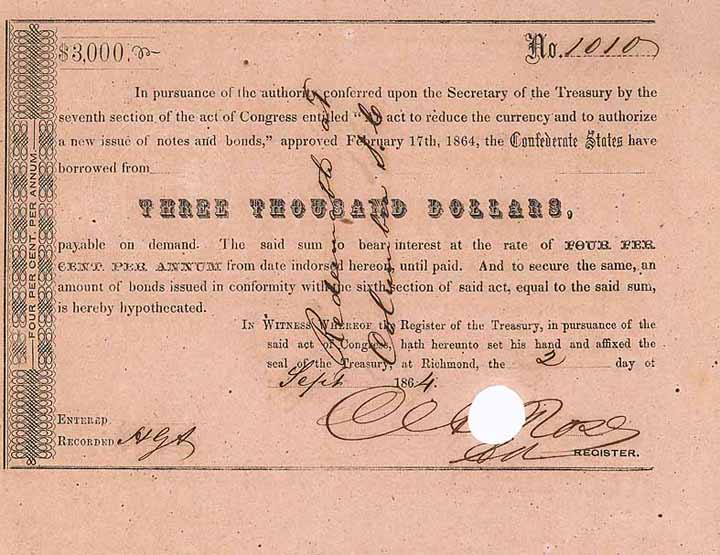 $3,000.
No. 1010
In pursuance of the authority conferred upon the Secretary of the Treasury by the
seventh section of the act of Congress entitled "An act to reduce the currency and to authorize
a new issue of notes and bonds," approved February 17th, 1864, the Confederate States have
borrowed from
THREE THOUSAND DOLLARS,
payable on demand. The said sum to bear interest at the rate of FOUR PER
CENT. PER ANNUM from date indorsed hereon, until paid. And to secure the same, an
amount of bonds issued in conformity with the sixth section of said act, equal to the said sum,
is hereby hypothecated.
In Witness Whereof the Register of the Treasury, in pursuance of the
said act of Congress, hath hereunto set his hand and affixed the
seal of the Treasury, at Richmond, the 2 day of
Sept 1864.
Entered
Recorded HGA
Rose
REGISTER.
FOUR PER CENT. PER ANNUM.
Redeemable at
Columbia S.C